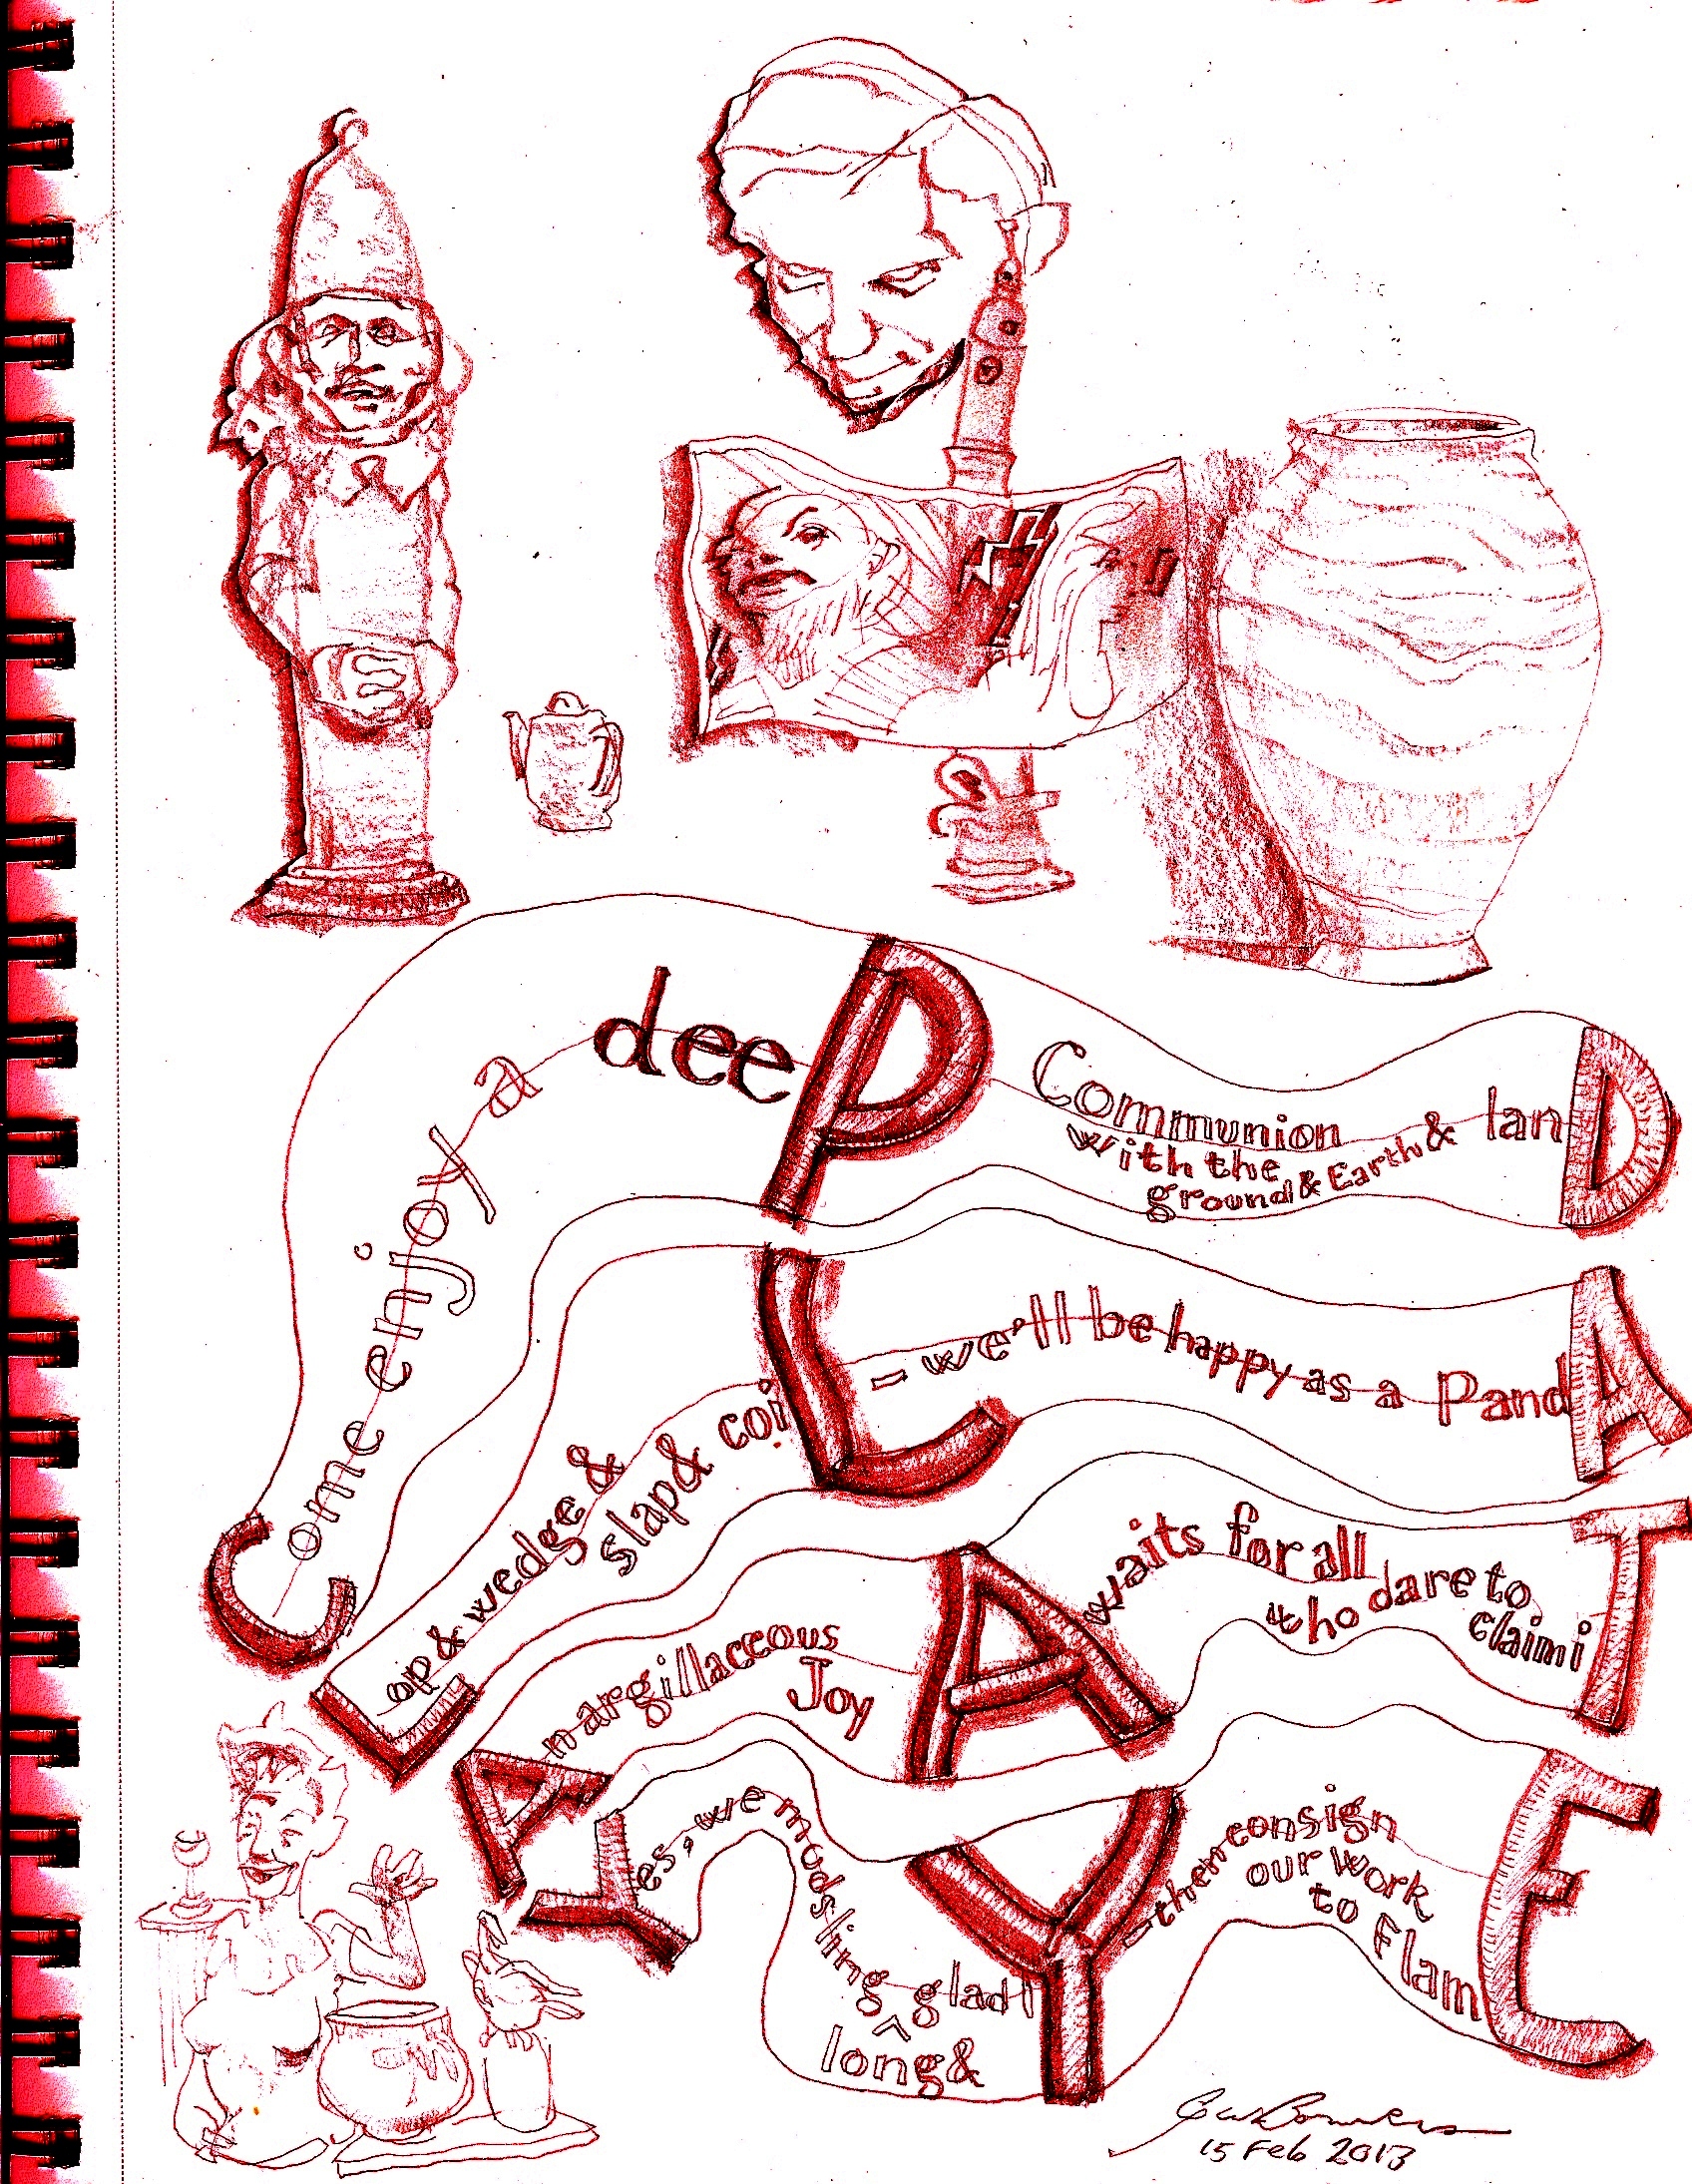 Come enjoy a deeP Communion
with the
ground & Earth & lanD
Lop & wedge &
slap & coiL – we'll be happy as a PandA
An argillaceous
Joy Awaits for all
who dare to
claim iT
Yes, we modsling gladlY
long &
– then consign
our work
to FlamE
15 Feb 2013